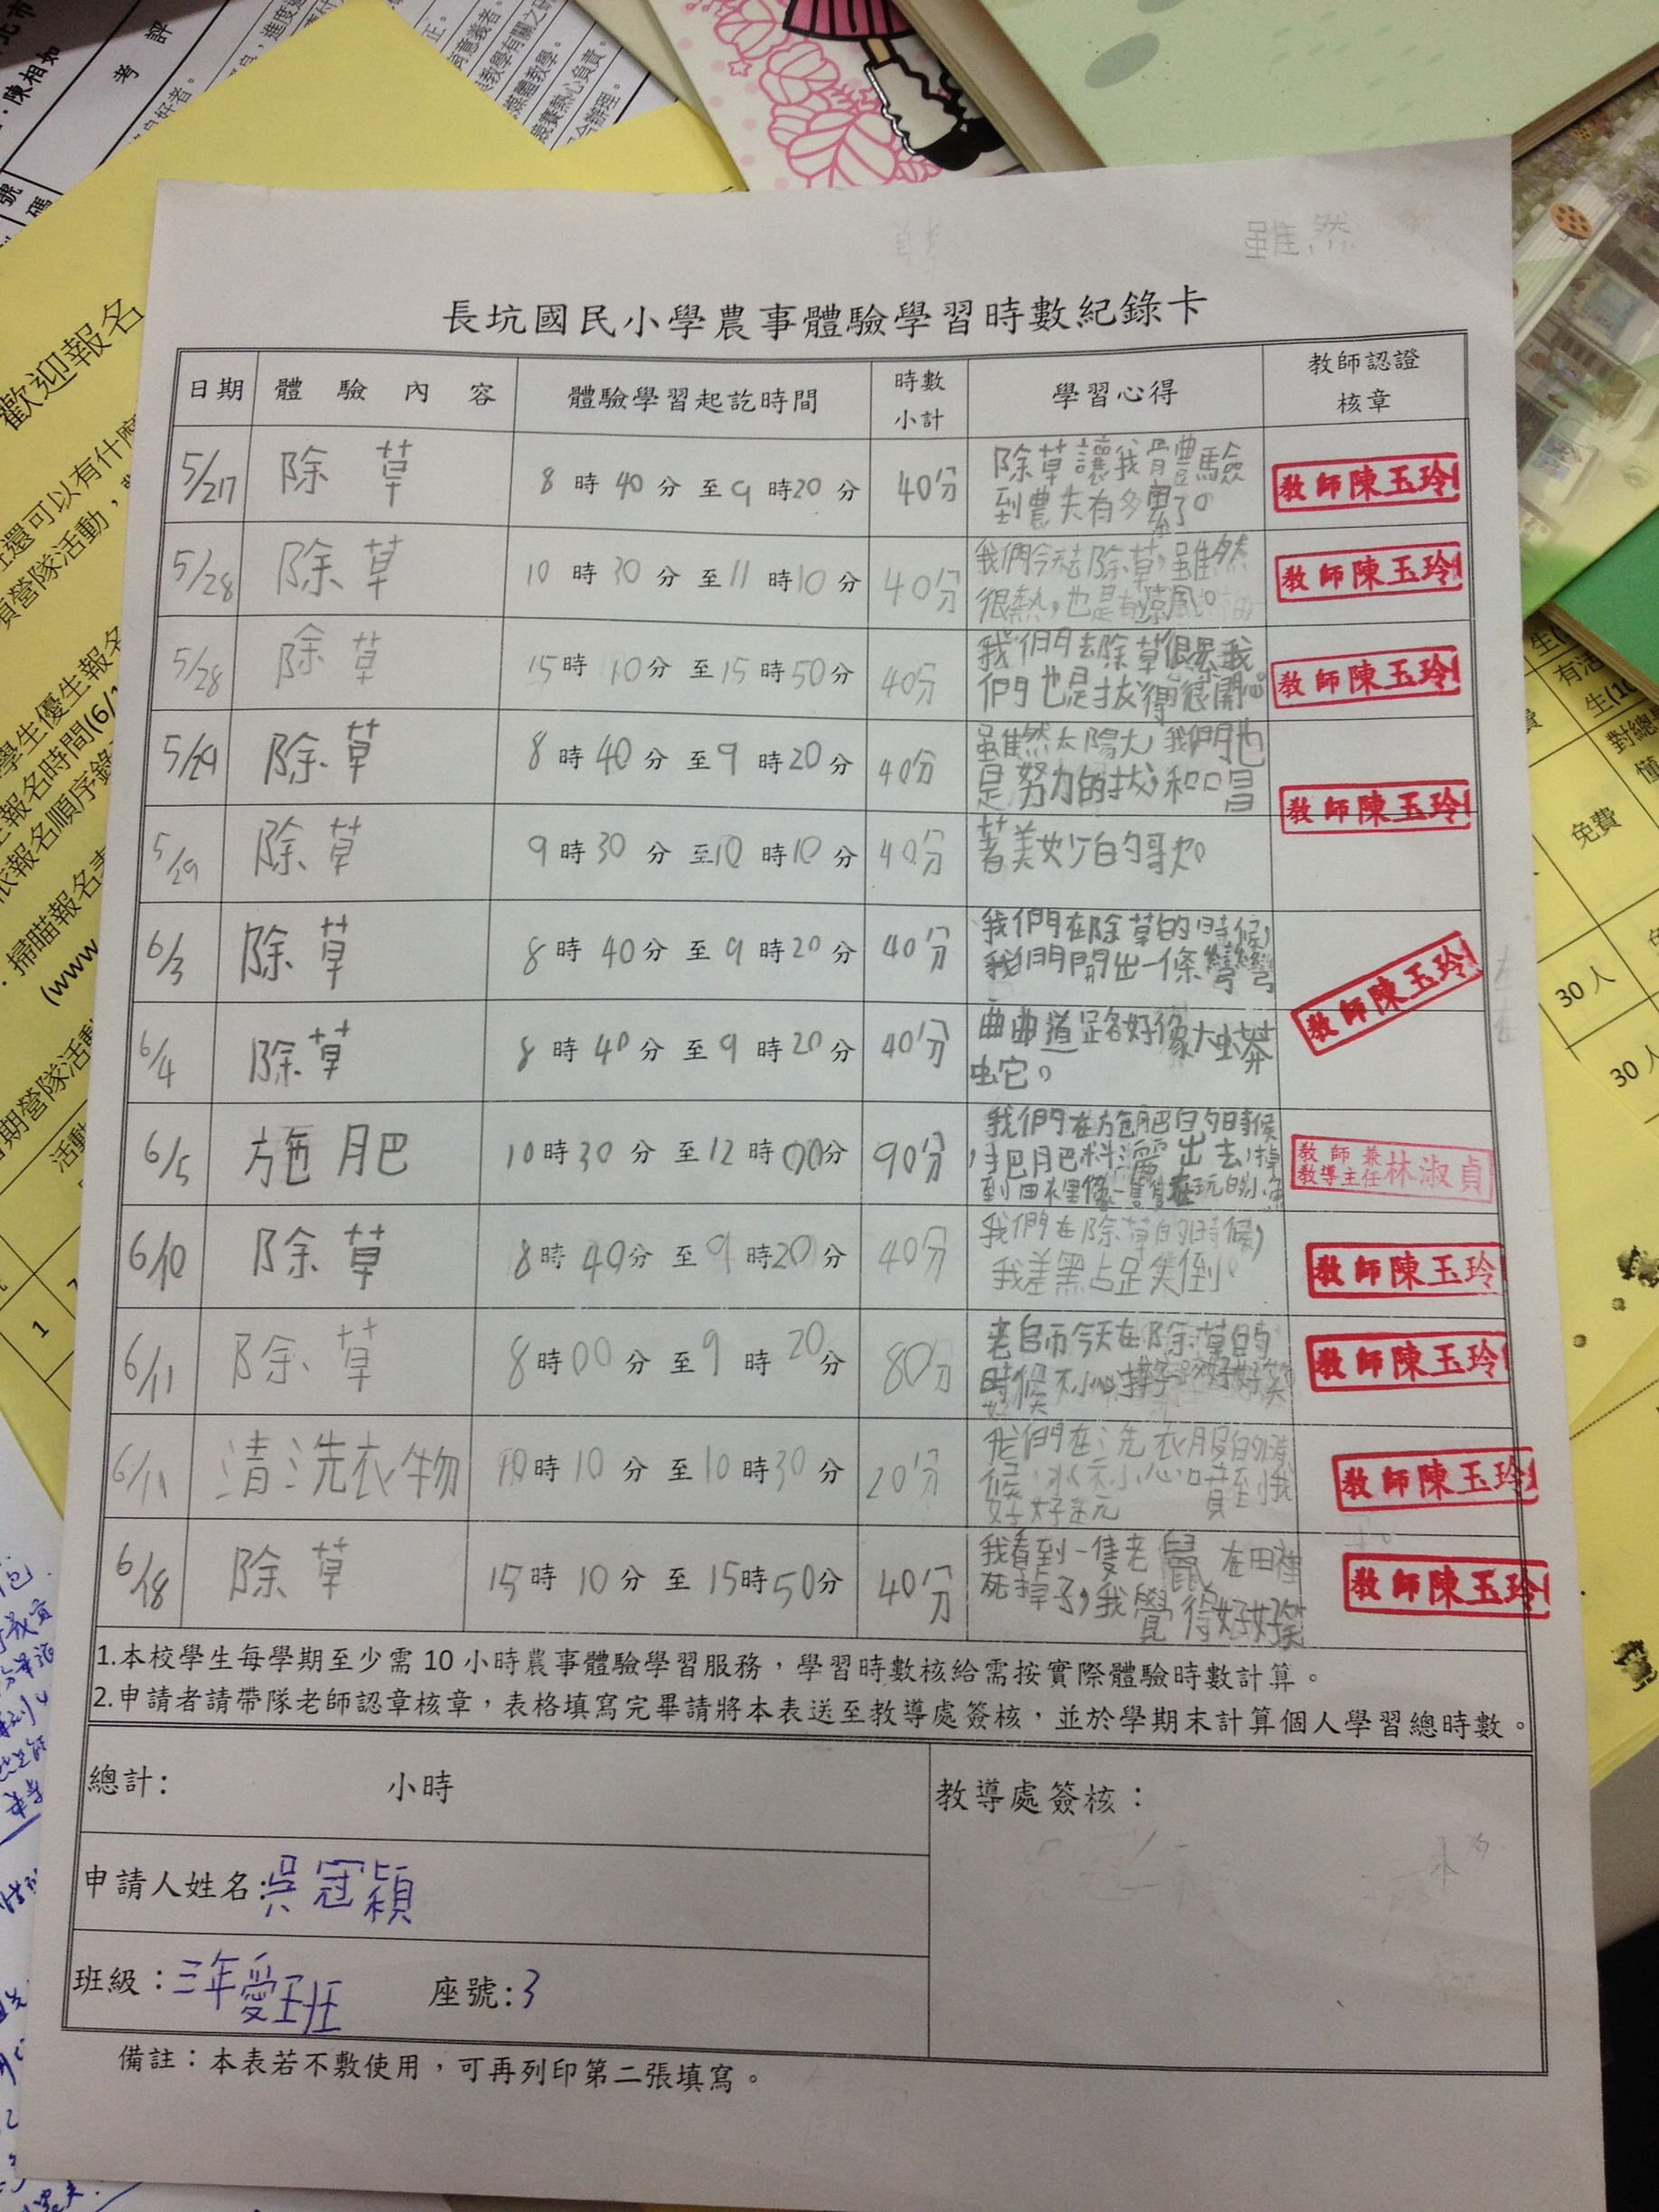 雖然
長坑國民小學農事體驗學習時數紀錄卡
日期 體驗內容 體驗學習起訖時間 時數小計 學習心得 教師認證核章
5/27 除草 8時40分至9時20分 40分 除草讓我體驗
到農夫有多累了。 教師陳玉玲
5/28 除草 10時30分至11時10分 40分 我們今天去除草,雖然
很熱,也是有涼風。 教師陳玉玲
5/28 除草 15時10分至15時50分 40分 我們去除草很累我
們也是拔得很開心。 教師陳玉玲
5/29 除草 8時40分至9時20分 40分 雖然太陽大,我們也
是努力的拔,和唱 教師陳玉玲
5/29 除草 9時30分至10時10分 40分 著美妙的歌。
6/3 除草 8時40分至9時20分 40分 我們在除草的時候,
我們開出一條彎彎 教師陳玉玲
6/4 除草 8時40分至9時20分 40分 曲曲道路好像大蟒
蛇。
6/5 施肥 10時30分至12時00分 90分 我們在施肥的時候
,把肥料灑出去,掉
到田裡像一隻隻在玩的小魚 教師兼教導主任林淑貞
6/10 除草 8時40分至9時20分 40分 我們在除草的時候,
我差點跌倒。 教師陳玉玲
6/11 除草 8時00分至9時20分 80分 老師今天在除草的
時候不小心 好好笑 教師陳玉玲
6/11 清洗衣物 10時10分至10時30分 20分 我們在洗衣服的時
候,水不小心噴到我
好好玩 教師陳玉玲
6/18 除草 15時10分至15時50分 40分 我看到一隻老鼠在田裡
死掉了,我覺得好好笑 教師陳玉玲
1.本校學生每學期至少需10小時農事體驗學習服務,學習時數核給需按實際體驗時數計算。
2.申請者請帶隊老師認章核章,表格填寫完畢請將本表送至教導處簽核,並於學期末計算個人學習總時數。
總計: 小時
教導處簽核:
申請人姓名:吳冠穎
班級:三年愛班 座號:3
備註:本表若不敷使用,可再列印第二張填寫。
歡迎報名
免費
30人
30人
1